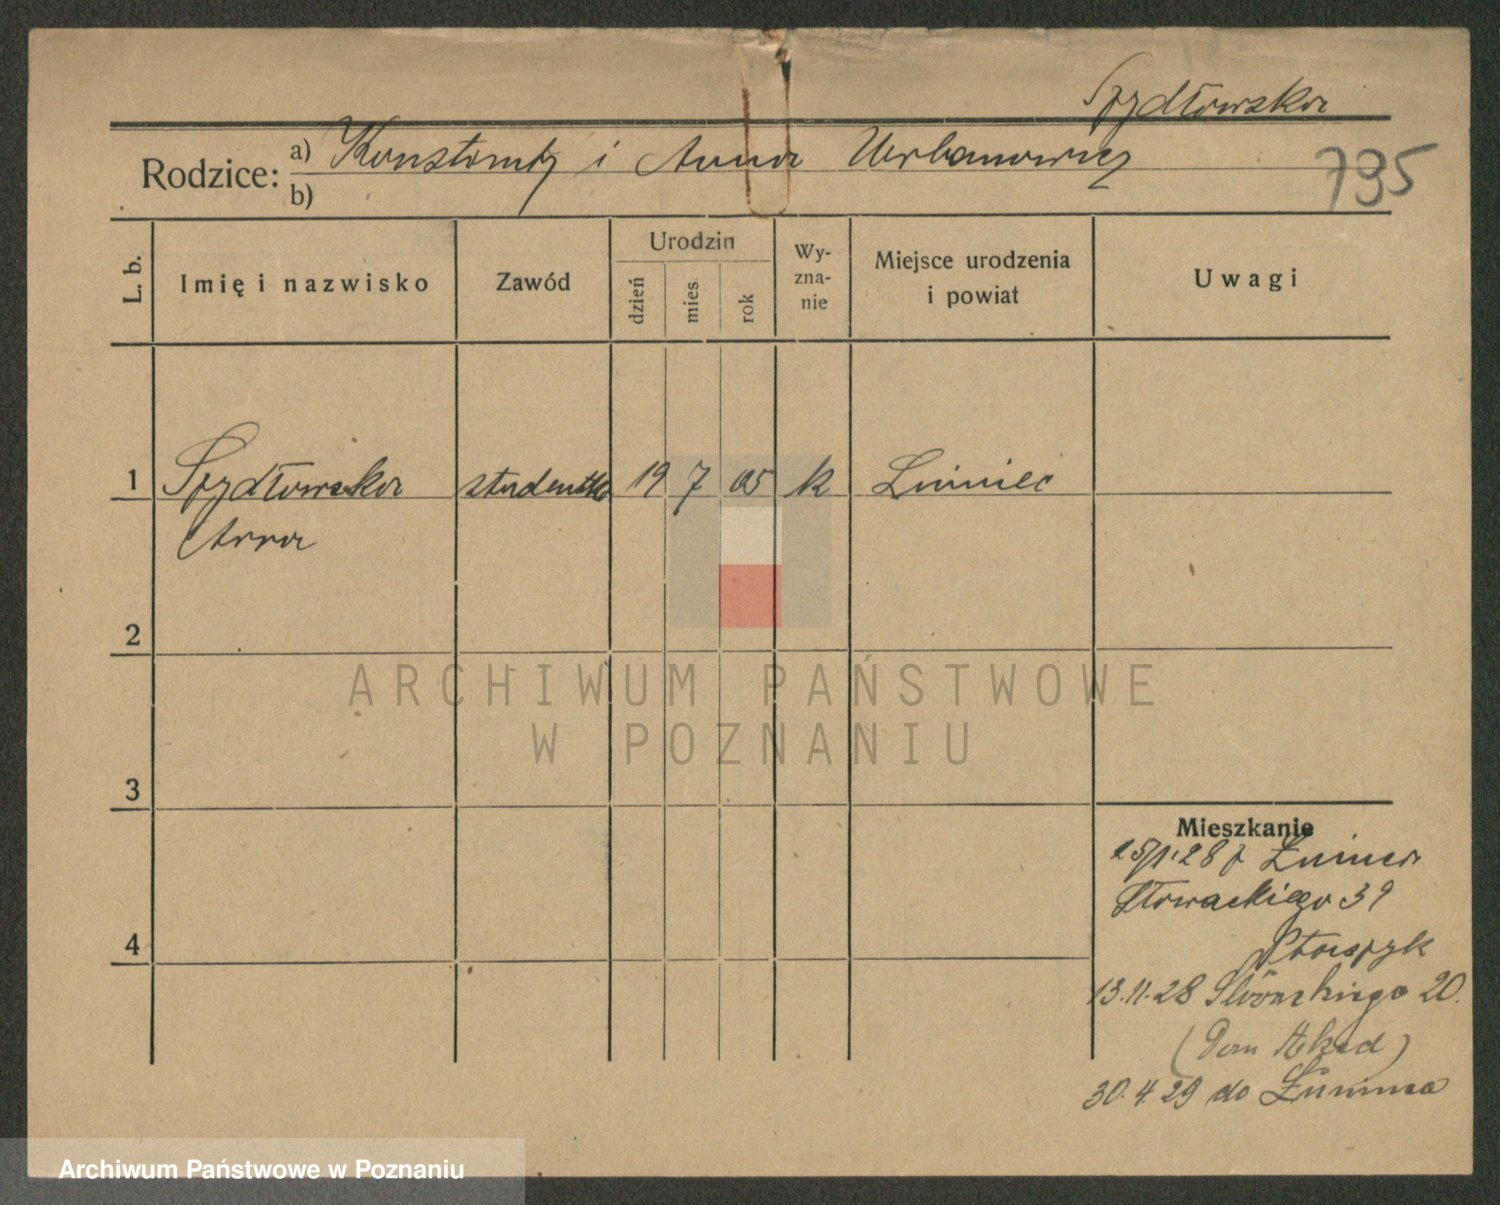 Szydłowska
Rodzice: a) Konstanty i Anna Urbanowicz
b)
795
L. b.
Imię i nazwisko
Zawód
Urodzin
dzień
mies.
rok
Wy-
zna-
nie
Miejsce urodzenia
i powiat
Uwagi
1 Szydłowska studentka 19 7 05 k
Anna
2
3
4
Mieszkanie
Słowackiego 39
13.11.28 20.
(Dom Akad)
30.4.29 do
ARCHIWUM PAŃSTWOWE
W POZNANIU
Archiwum Państwowe w Poznaniu